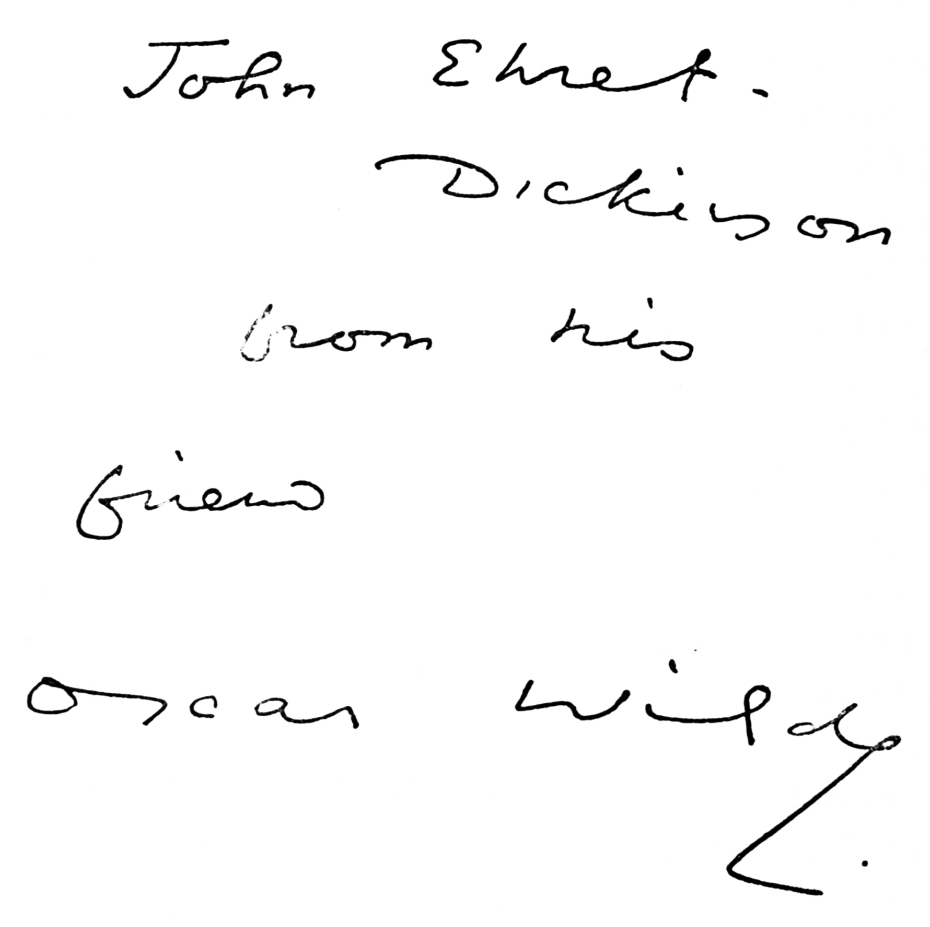 John Ehret-
Dickinson
from his
friend
Oscar Wilde.